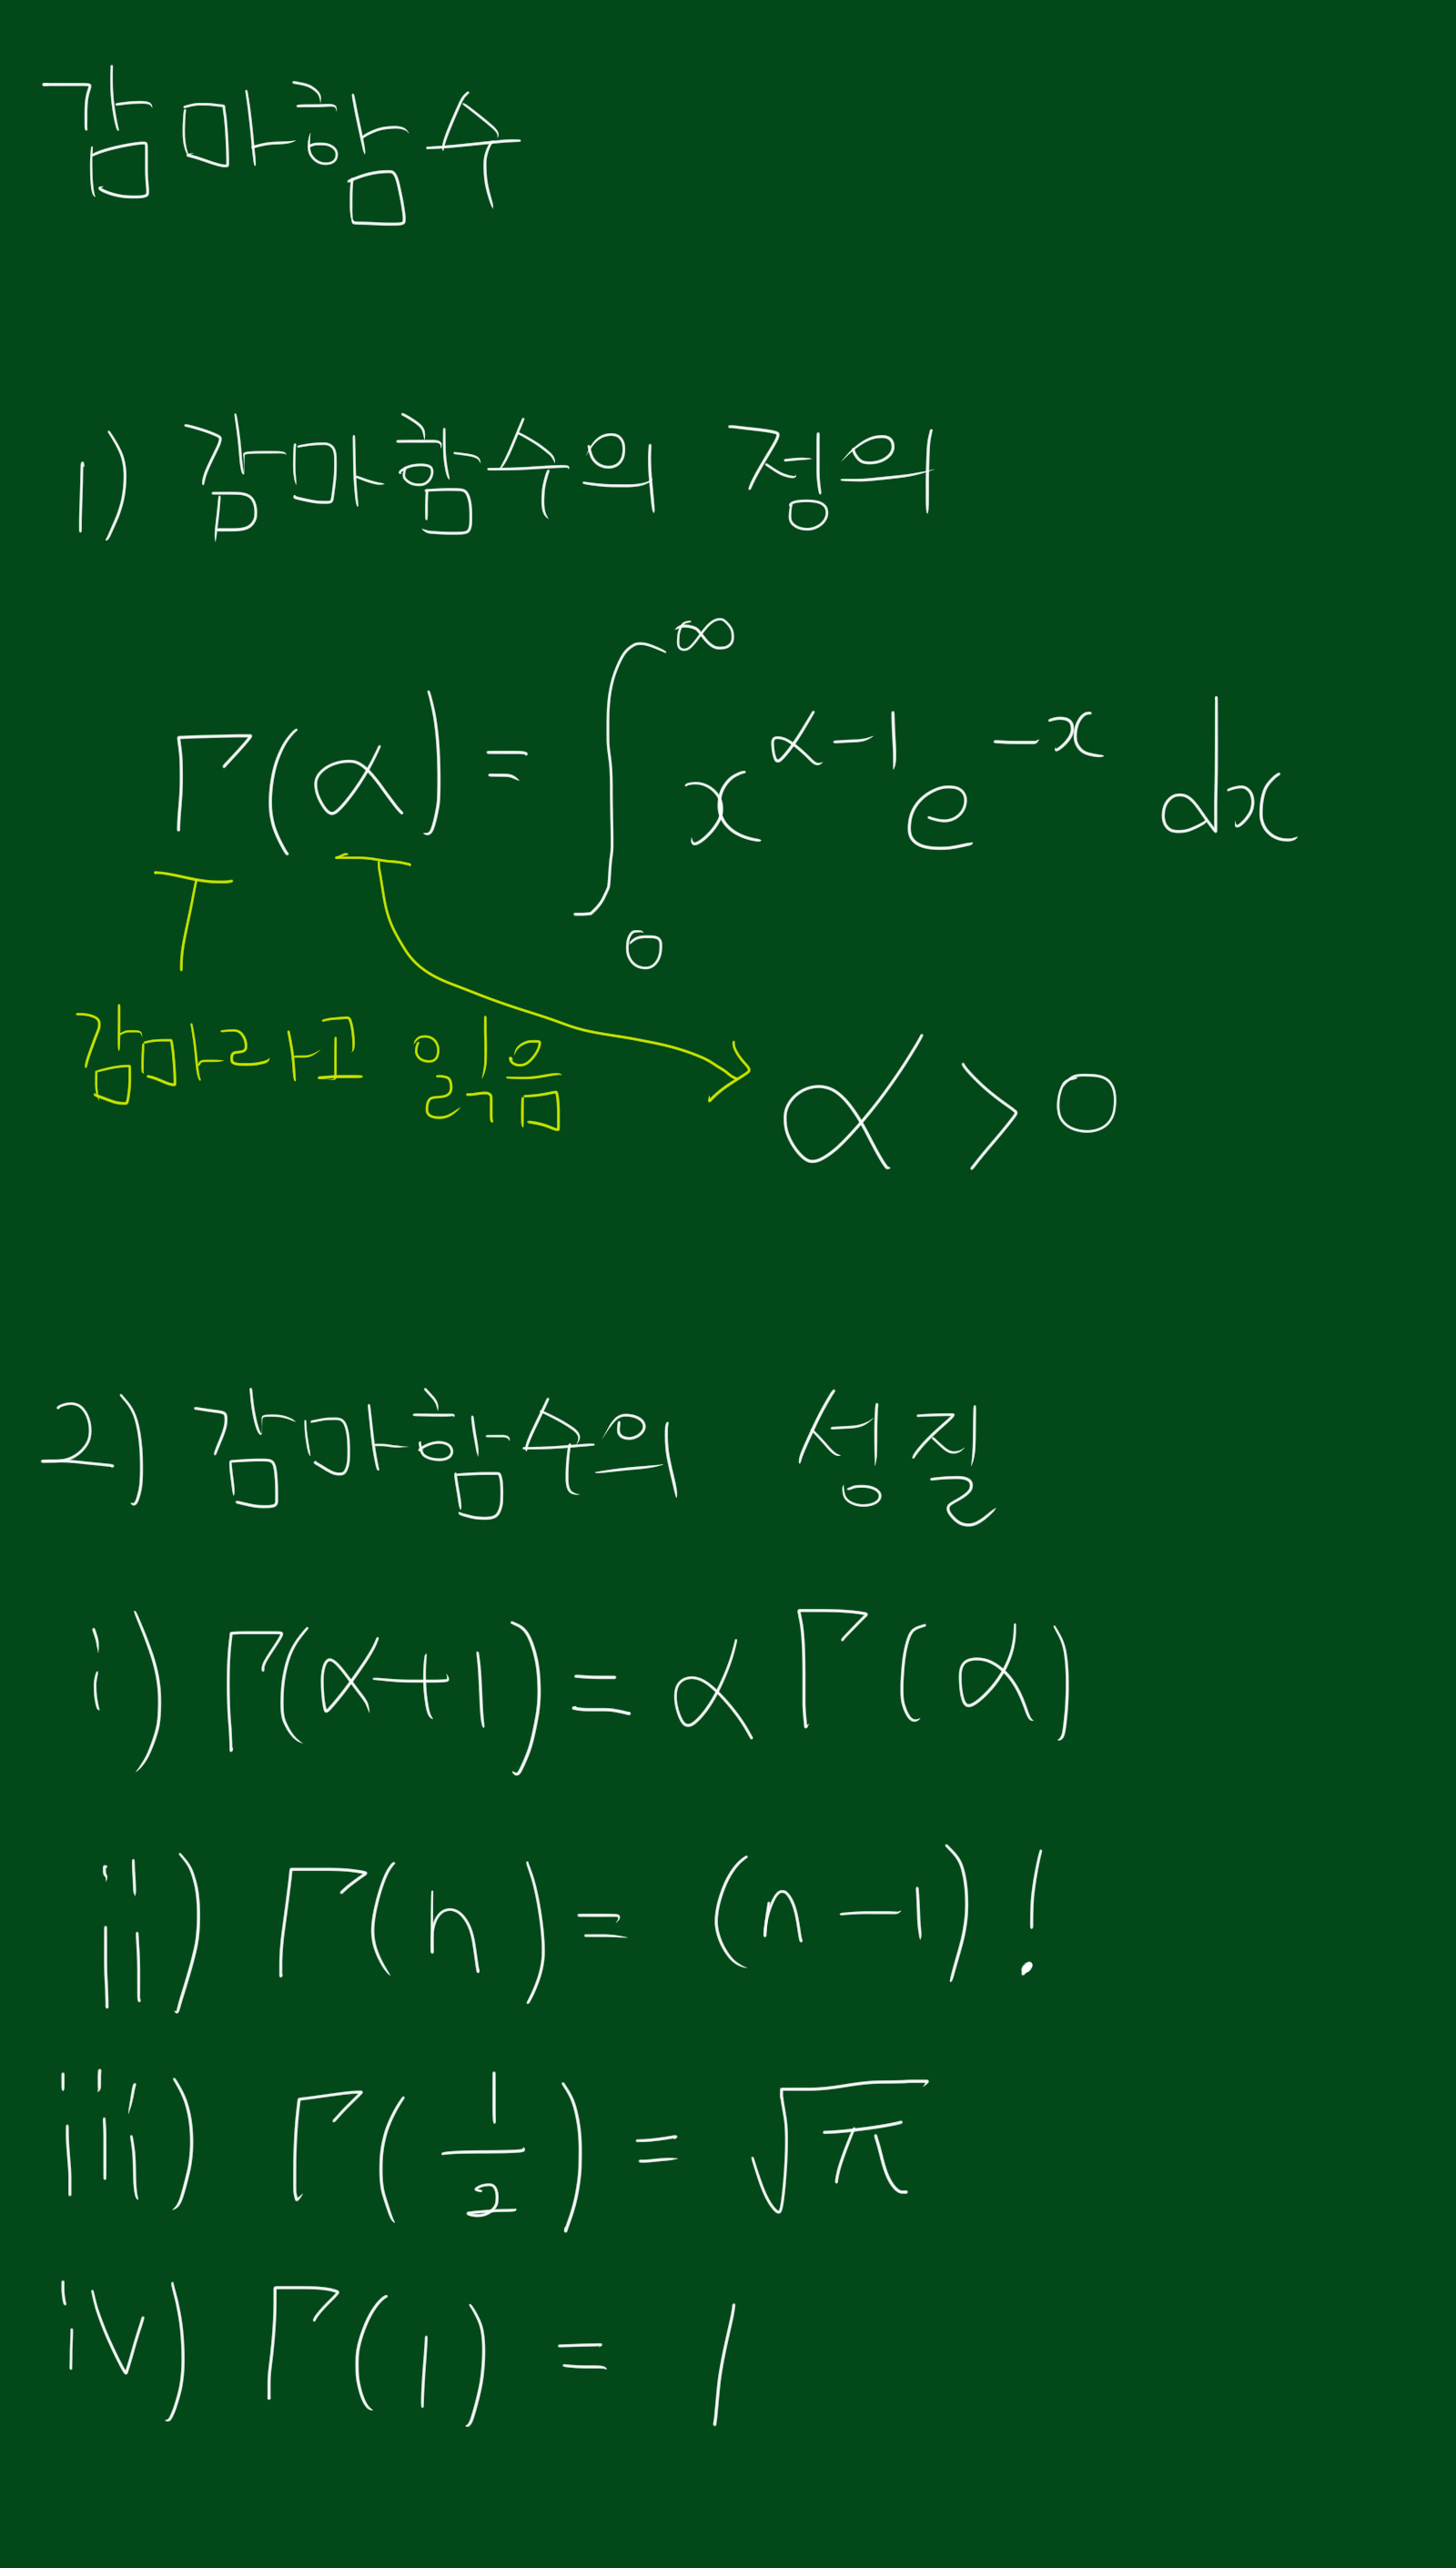 감마함수
1) 감마함수의 정의
Γ(α) = ∫₀^∞ x^(α-1) e^(-x) dx
감마라고 읽음
α > 0
2) 감마함수의 성질
i) Γ(α+1) = αΓ(α)
ii) Γ(n) = (n-1)!
iii) Γ(1/2) = √π
iv) Γ(1) = 1